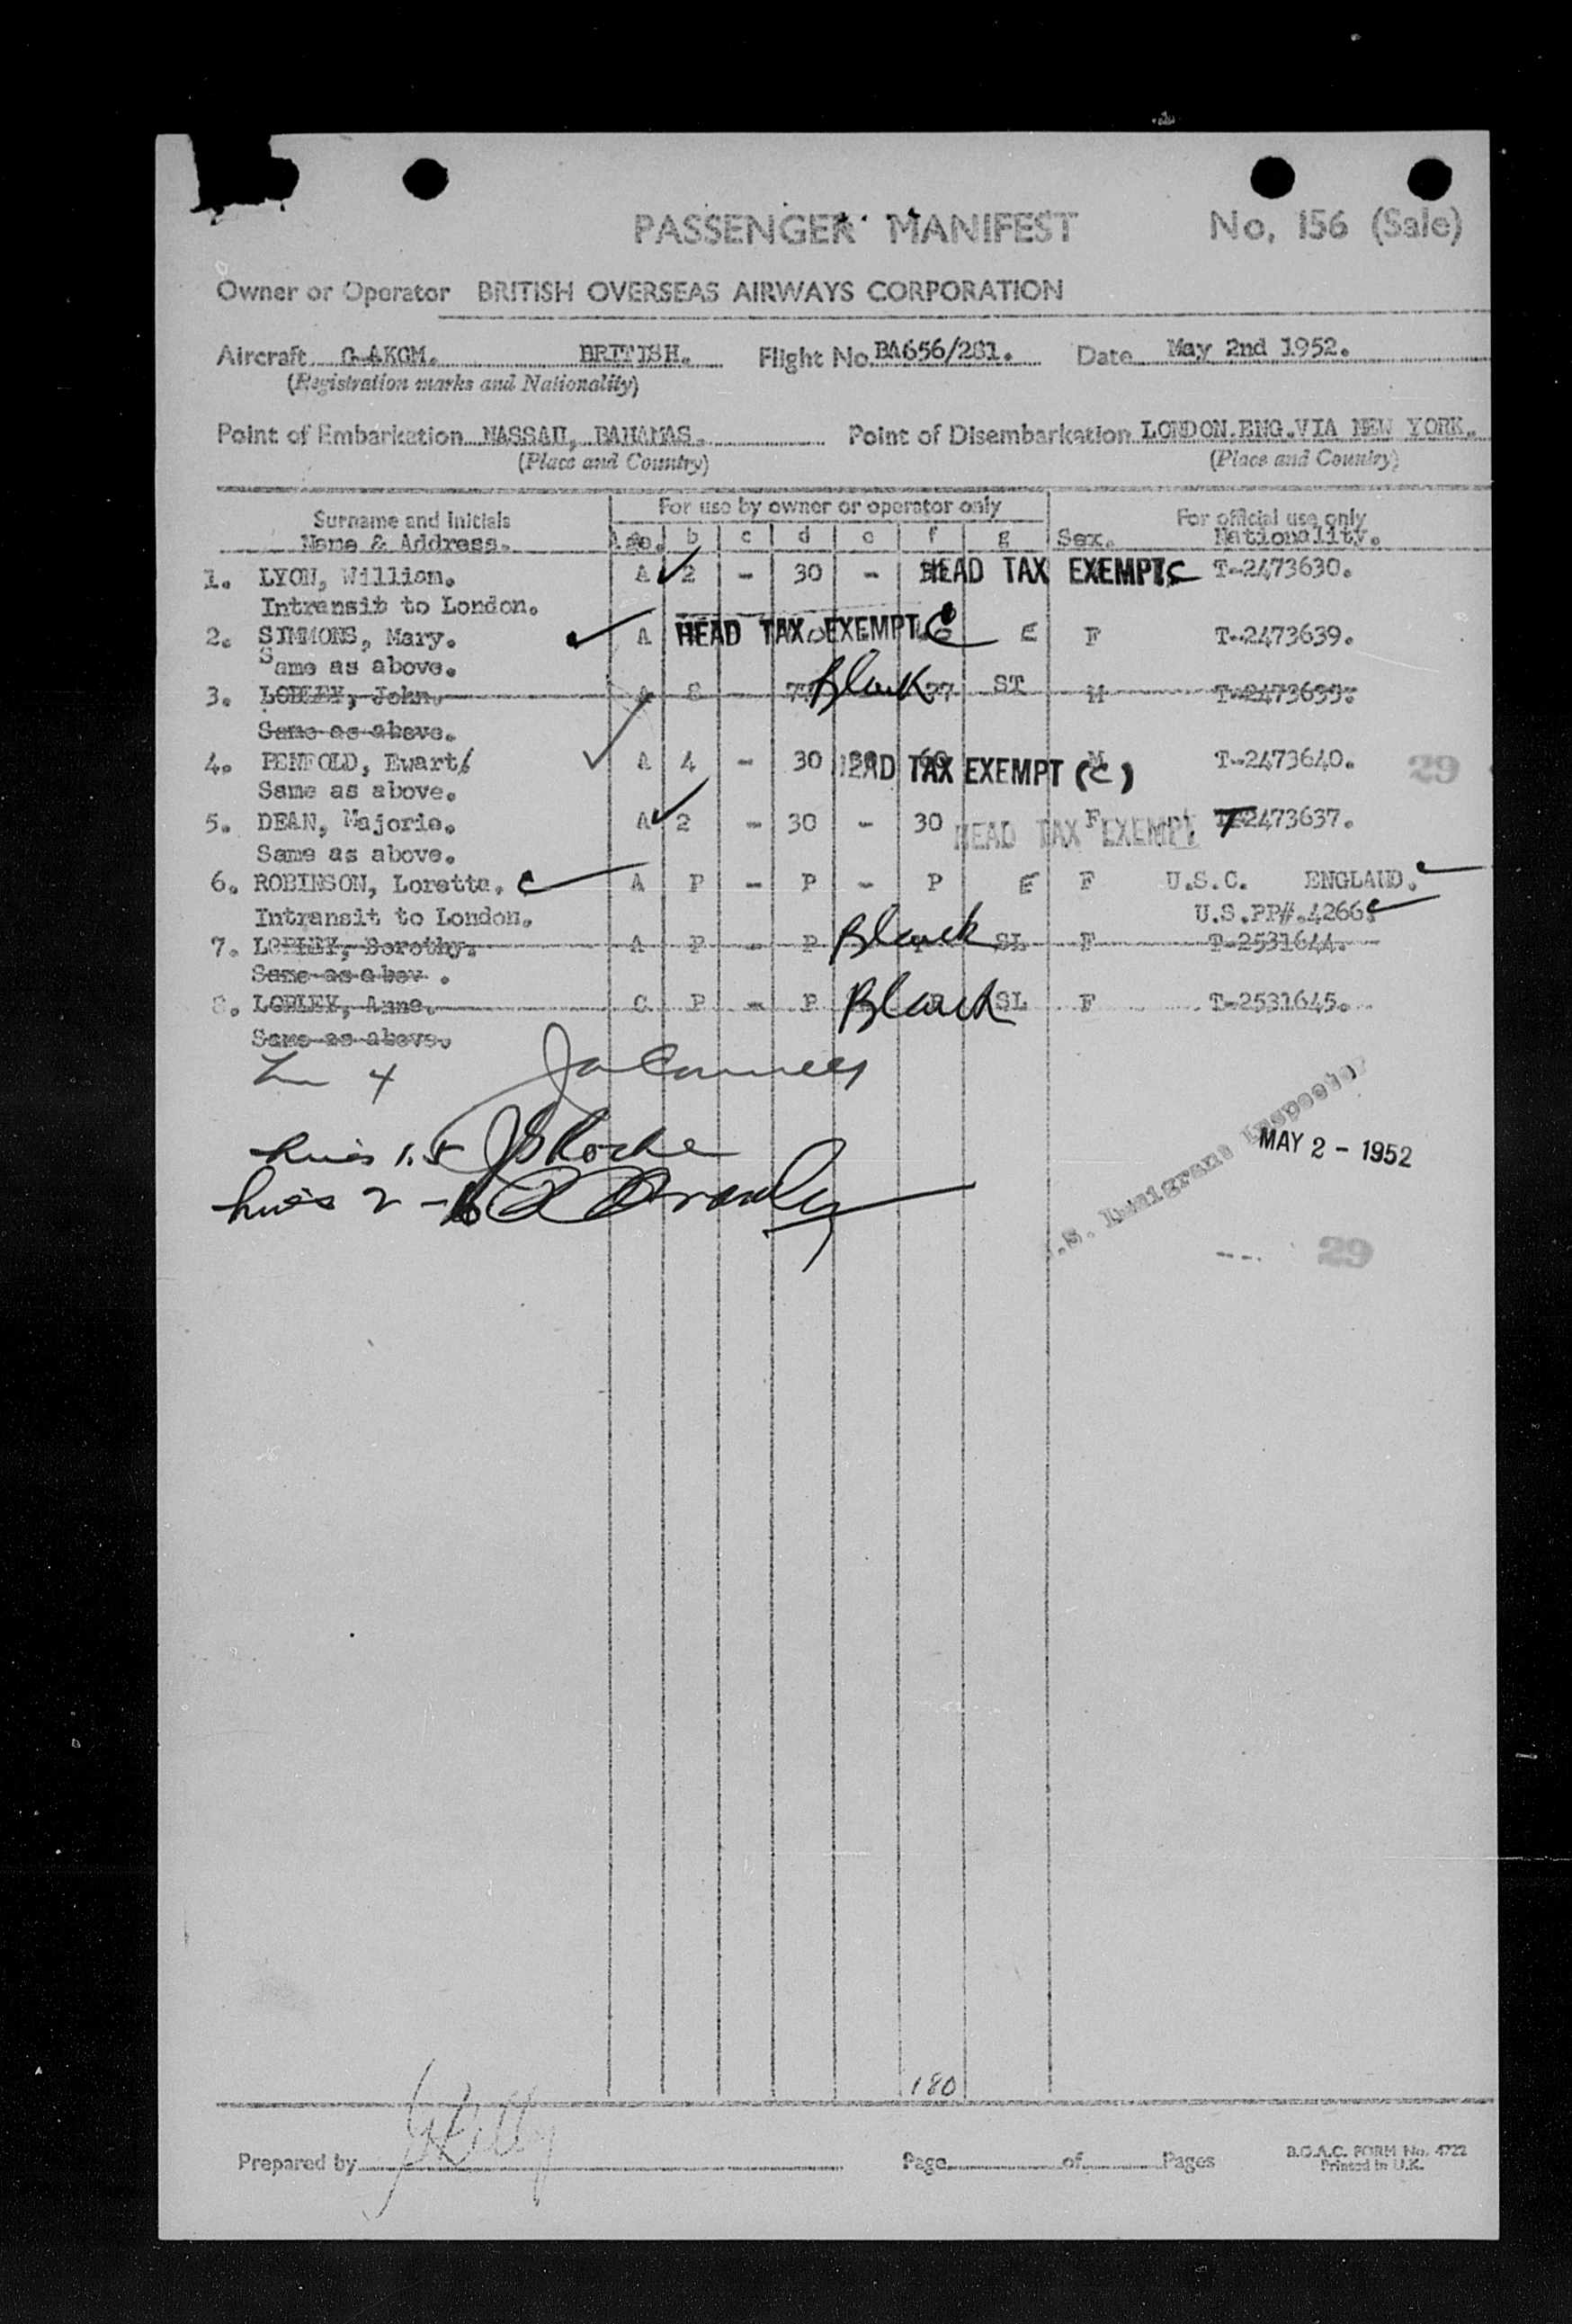 PASSENGER MANIFEST No. 156 (Sale)
Owner or Operator BRITISH OVERSEAS AIRWAYS CORPORATION
Aircraft G-AKGM. BRITISH. Flight No BA656/281. Date May 2nd 1952.
(Registration marks and Nationality)
Point of Embarkation NASSAU, BAHAMAS. Point of Disembarkation LONDON.ENG.VIA NEW YORK.
(Place and Country) (Place and Country)
Surname and Initials For use by owner or operator only For official use only
Name & Address. Age. b c d e f g Sex. Nationality.
1. LYON, William. A 2 - 30 - HEAD TAX EXEMPT C T-2473630.
Intransit to London.
2. SIMMONS, Mary. A HEAD TAX EXEMPT C E F T-2473639.
Same as above.
3. LOBLEY, John. A 8 - Blank ST M
Same as above.
4. PENFOLD, Ewart. A 4 - 30 HEAD TAX EXEMPT (C) M T-2473640. 29
Same as above.
5. DEAN, Majorie. A 2 - 30 - 30 HEAD TAX EXEMPT F T-2473637.
Same as above.
6. ROBINSON, Loretta. C A P - P - P E F U.S.C. ENGLAND.
Intransit to London. U.S.PP#.4266.
7. LOBLEY, Dorothy. A P - P Blank SL F T-2531644.
Same as abov .
8. LOBLEY, Anne. C P - P Blank SL F T-2531645.
Same as above.
4
1.5
2 - 6
U.S. Immigrant Inspector
MAY 2 - 1952
29
180
Prepared by Page of Pages B.O.A.C. FORM No. 4722
Printed in U.K.